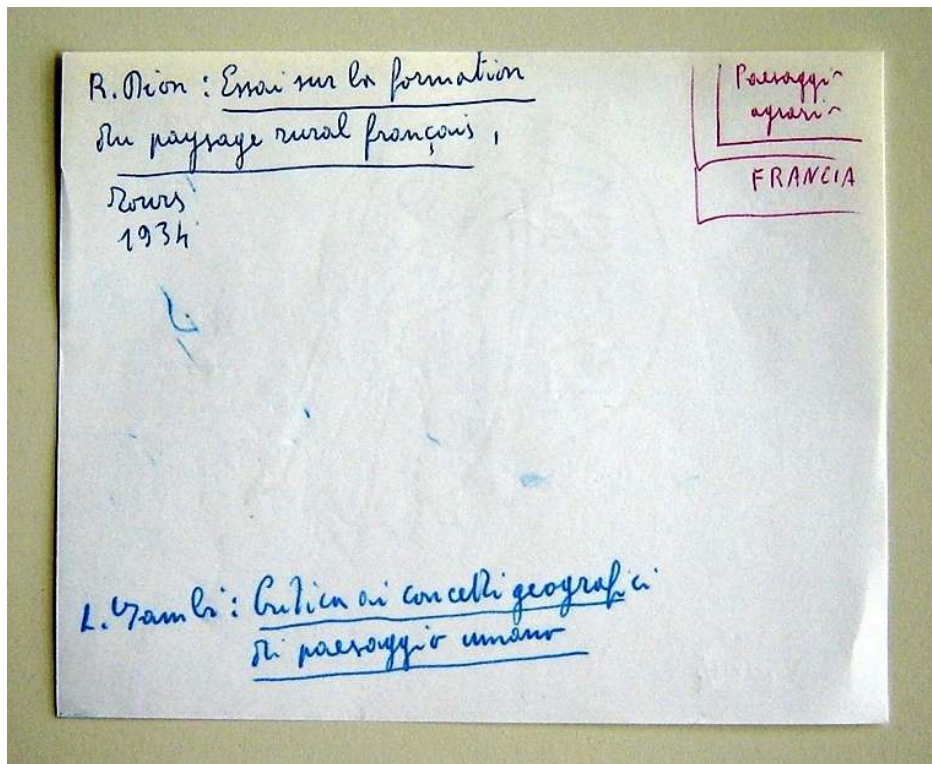 R. Dion : Essai sur la formation
du paysage rural français,
Tours
1934
Paesaggio
agrario
FRANCIA
L. Gambi : Critica ai concetti geografici
di paesaggio umano